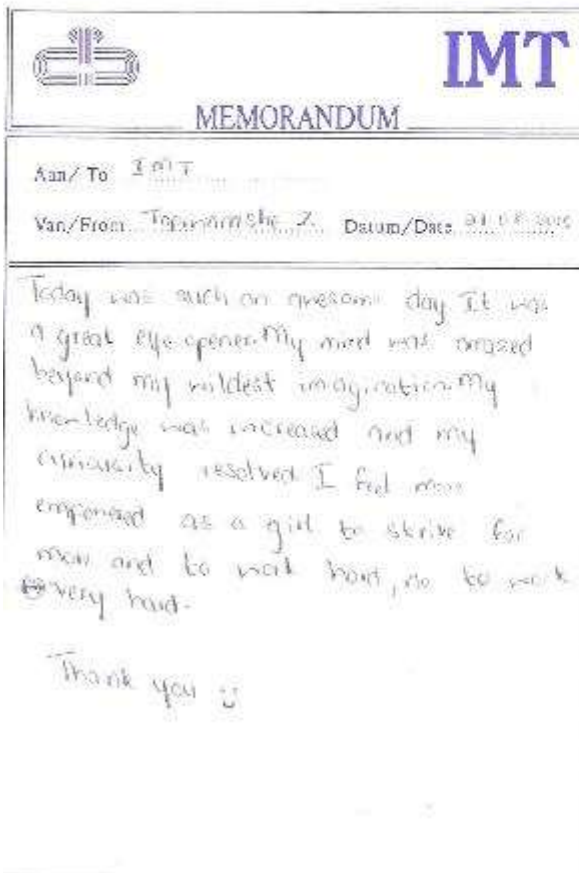 IMT
MEMORANDUM
Aan/To IMT
Van/From Datum/Date
Today was such an awesome day It was
a great eye opener. My mind was amazed
beyond my wildest imagination. My
knowledge was increased and my
resolved I feel more
empowered as a girl to strive for
more and to work hard, no to work
very hard.
Thank you